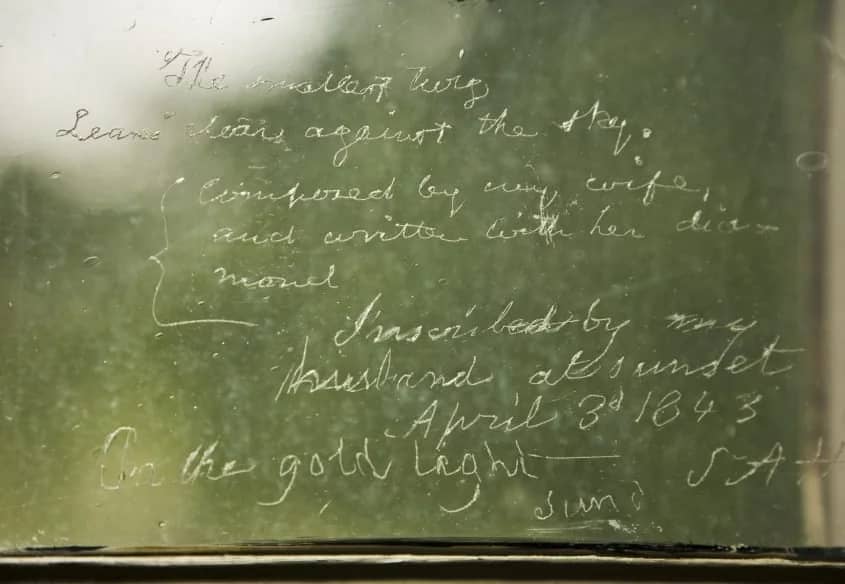 The smallest twig
Leans clear against the sky.
Composed by my wife,
and written with her dia-
mond
Inscribed by my
husband at sunset
April 3d 1843
On the gold light — SAH